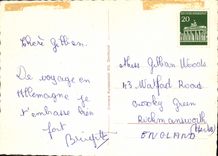 Chère Gillian.
De voyage en
Allemagne je
t'embrasse bien
fort
Brigitte
20
Miss Gillian Woods
43 Watford Road
Croxley Green
Rickmansworth
(Herts)
ENGLAND